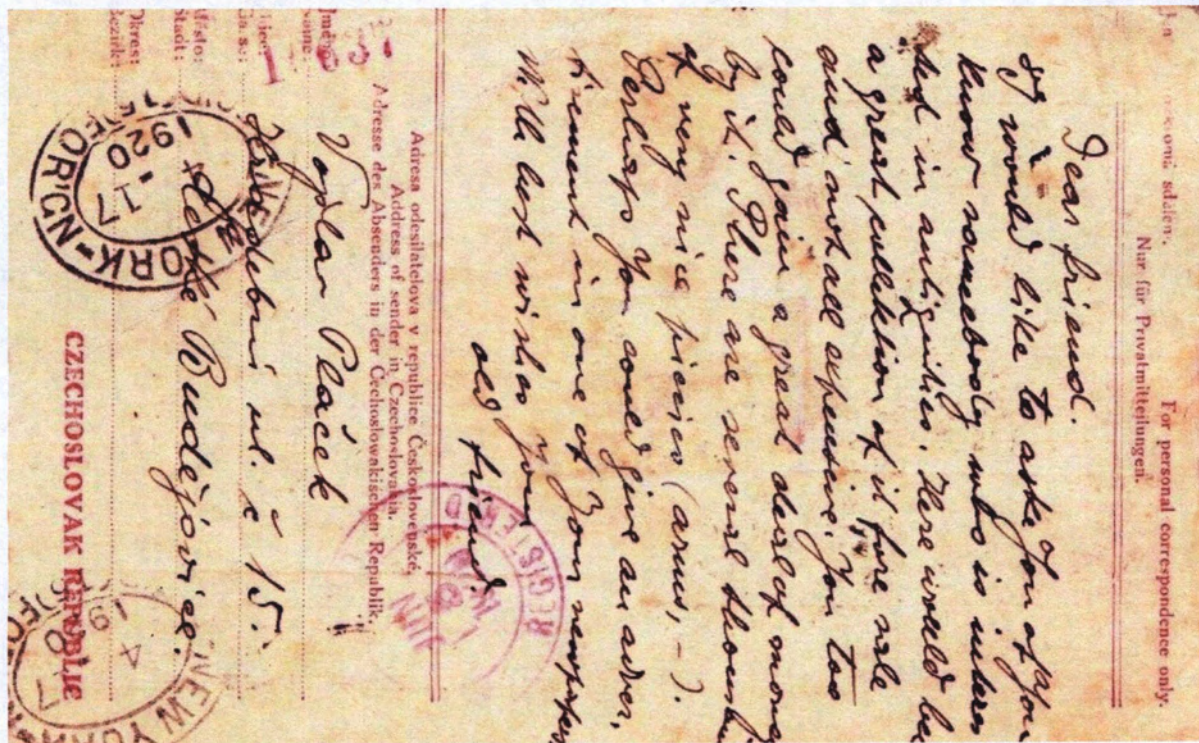 osobní sdělen
For personal correspondence only.
Nur für Privatmitteilungen.
Dear friend.
I would like to ask you if you
know somebody who is interes
ted in antiquities. Here would be
a great collection of it fore sale
and not all expensive. You too
could gain a great deal of money
by it. There are several
of very nice pieces (arms, – ).
Perhaps You could give an adver,
tisement in one of Your newspaper
With best wishes your
old friend.
REGISTERED
JUN
Adresa odesilatelova v republice Československé,
Address of sender in Czechoslovakia.
Adresse des Absenders in der Čechoslowakischen Republik.
Jméno:
Name:
Vojslav Plaček
Ulice:
Gia. s.:
ul. č 15.
Město:
Stadt:
České Budějovice.
Okres:
Bezirk:
CZECHOSLOVAK REPUBLIC
NEW YORK
17
1920
NEW YORK
4
19